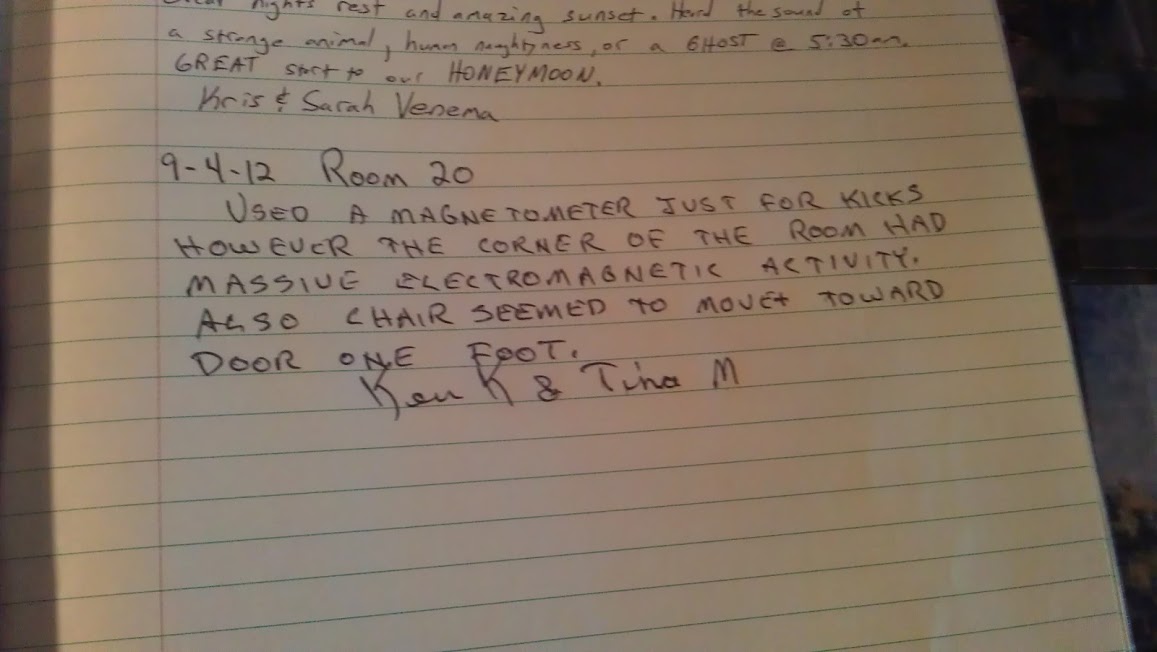 nights rest and amazing sunset. Heard the sound of
a strange animal, human naughtyness, or a GHOST @ 5:30am.
GREAT start to our HONEYMOON.
Kris & Sarah Venema
9-4-12 Room 20
USED A MAGNETOMETER JUST FOR KICKS
HOWEVER THE CORNER OF THE ROOM HAD
MASSIVE ELECTROMAGNETIC ACTIVITY.
ALSO CHAIR SEEMED TO MOVE TOWARD
DOOR ONE FOOT.
Ken K & Tina M